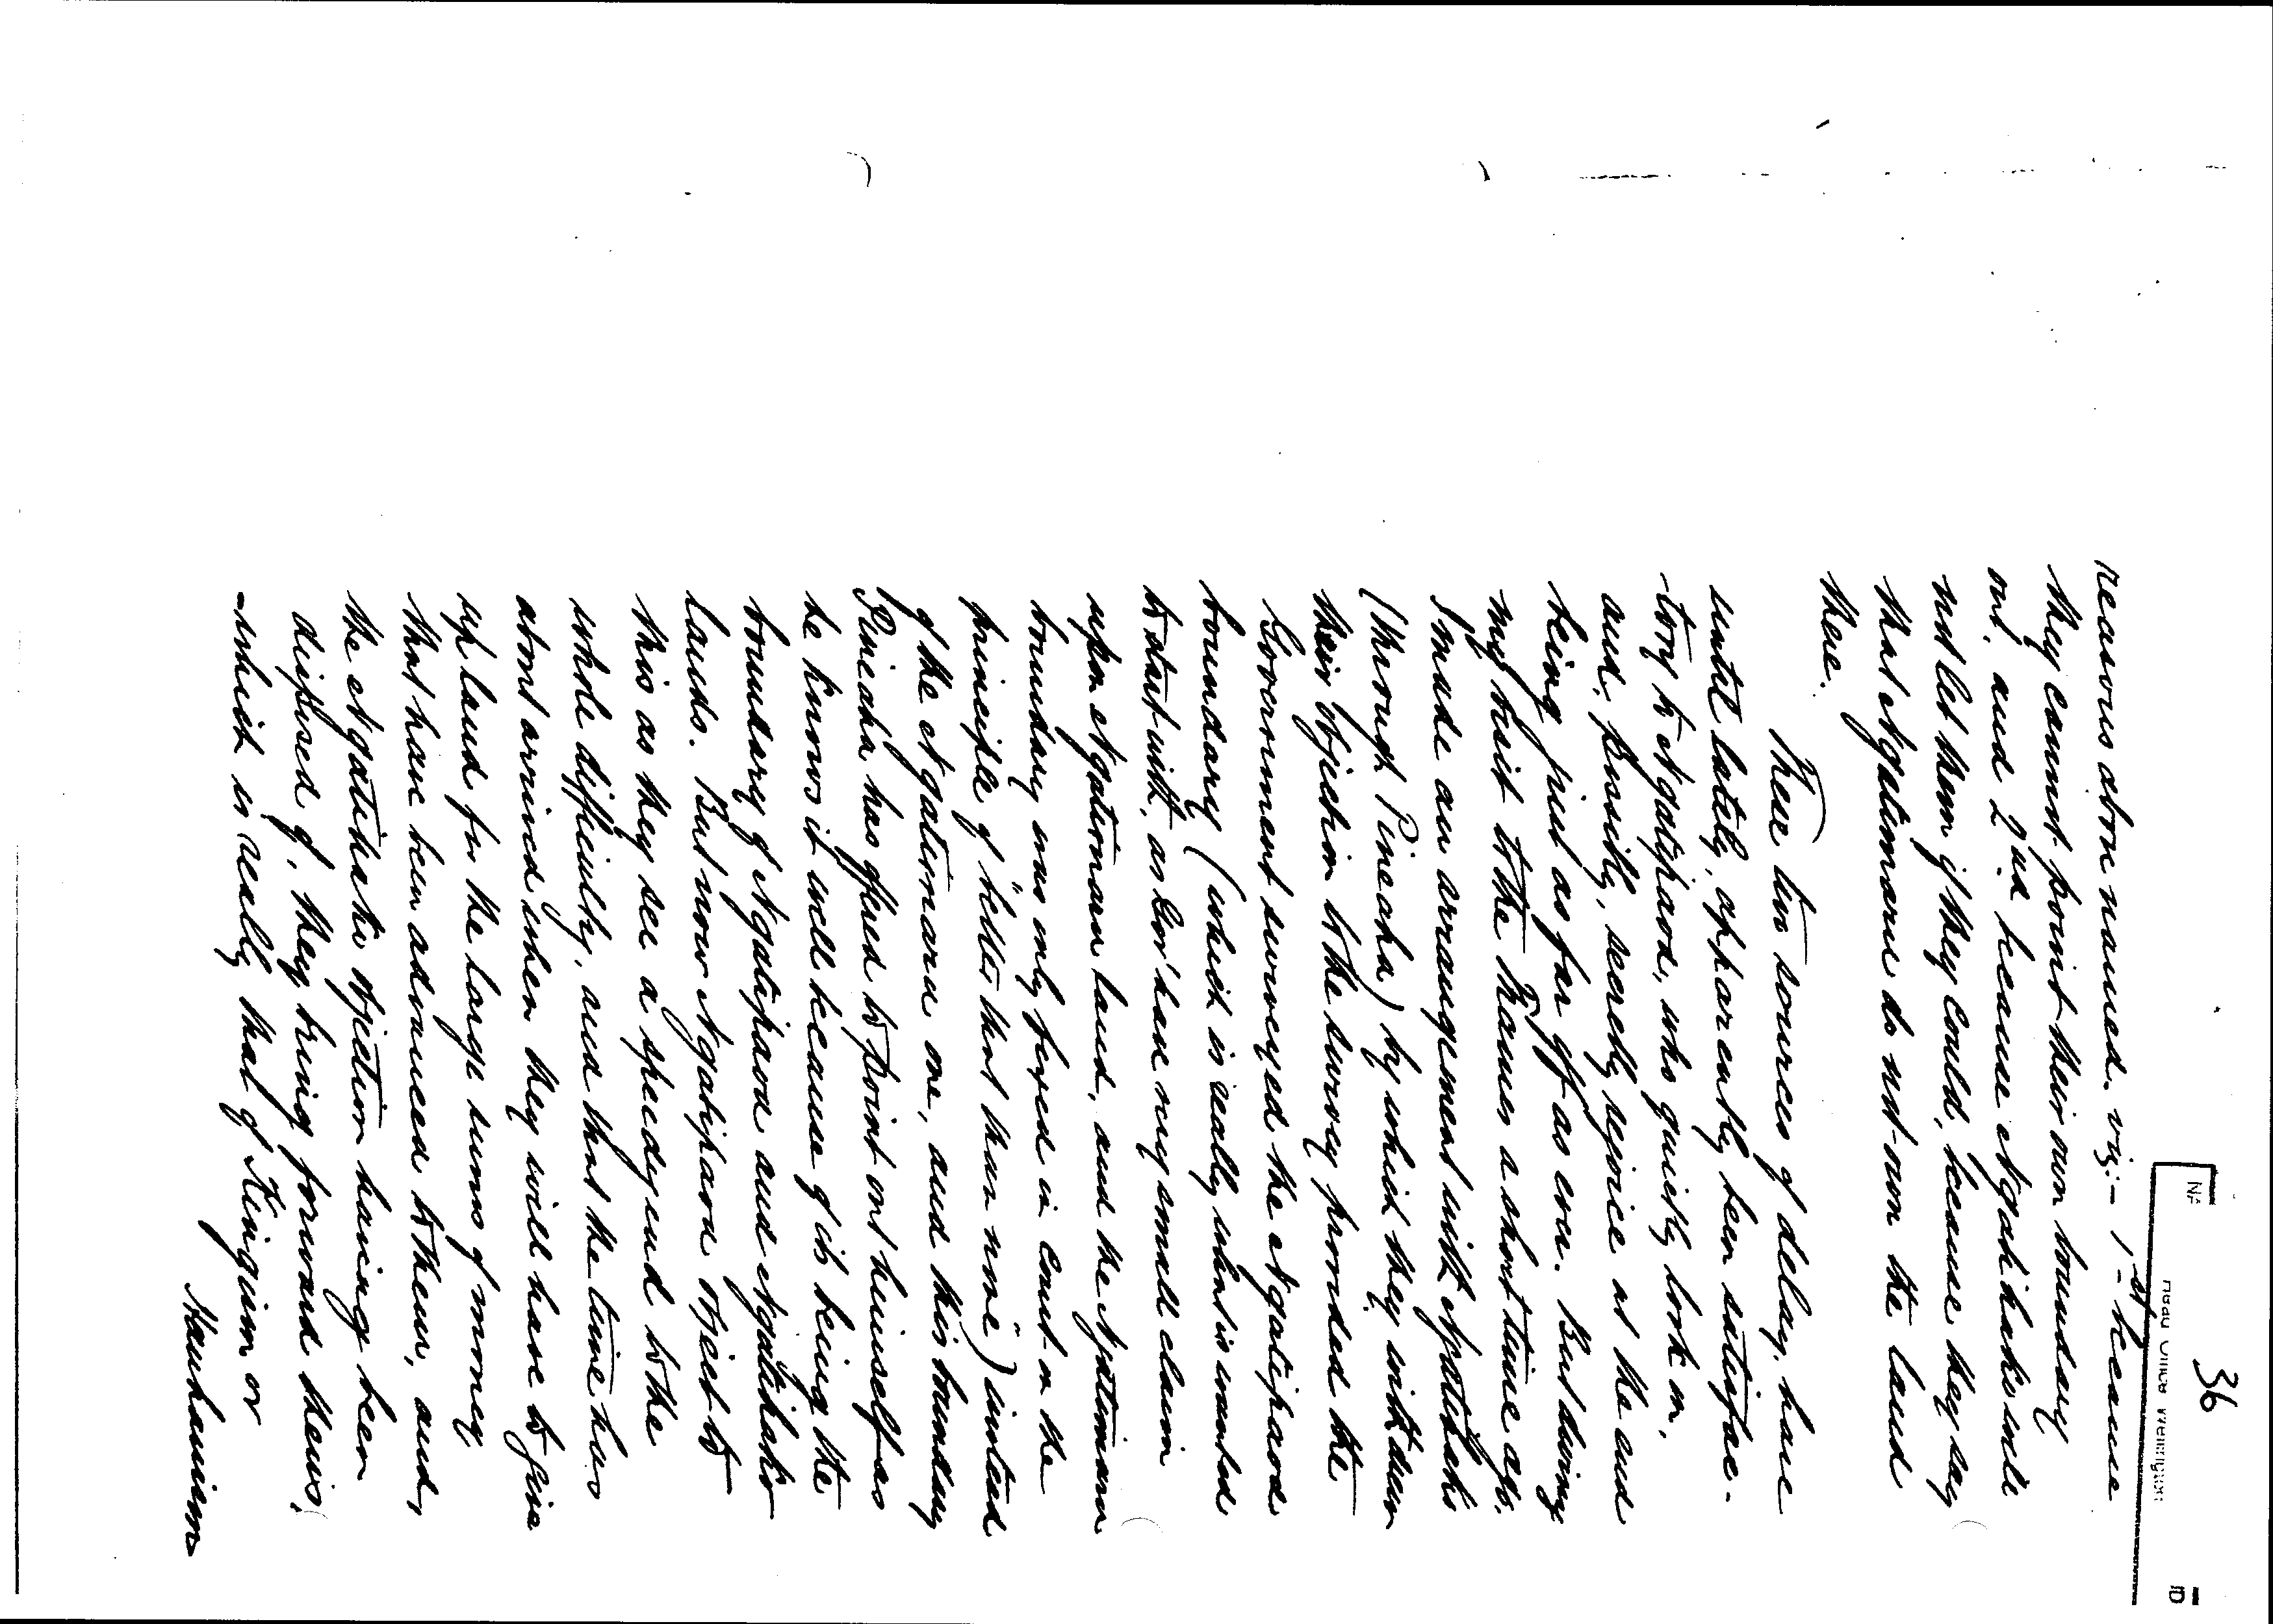 36
Head Office Wellington
reasons above named. viz:- 1st because
they cannot point their own boundary
out, and 2nd because Ngatihako will
not let them if they could, because they say
that Ngatimaru do not own the land
there.
These two sources of delay, have
until lately, apparently been satisfac-
-tory to Ngatipaoa, who quietly look on,
and, possibly, secretly rejoice at the end
being just as far off as ever. But during
my visit to the Thames a short time ago,
I made an arrangement with Ngatihako
(through Pineaha) by which they withdrew
their objection to the survey provided the
Government surveyed the Ngatipaoa
boundary (which is really what is wanted
to start with, as Gov' have very small claim
upon Ngatimaru land, and the Ngatimaru
boundary was only fixed in Court on the
principle of "better that than none") instead
of the Ngatimaru one, and this boundary
Pineaha has offered to point out himself as
he knows it well because of its being the
boundary of Ngatipaoa and Ngatihako
lands. But now Ngatipaoa object to
this as they see a speedy end to the
whole difficulty, and that the time has
about arrived when they will have to give
up land for the large sums of money
that have been advanced to them, and,
the Ngatihako objection having been
disposed of, they bring forward theirs,
-which is really that of Kingism or
Hauhauism